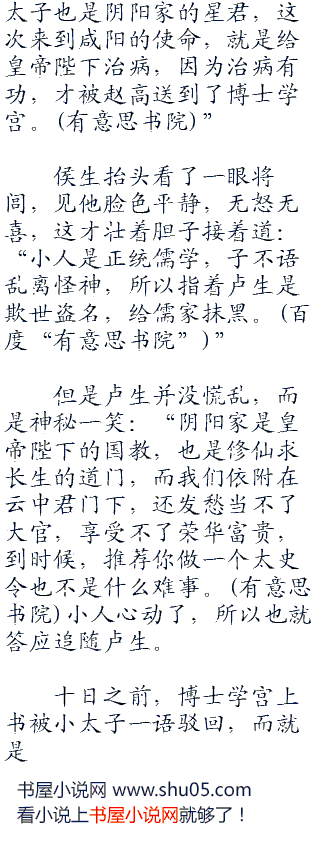 太子也是阴阳家的星君，这
次来到咸阳的使命，就是给
皇帝陛下治病，因为治病有
功，才被赵高送到了博士学
宫。(有意思书院)”
侯生抬头看了一眼将
闾，见他脸色平静，无怒无
喜，这才壮着胆子接着道：
“小人是正统儒学，子不语
乱离怪神，所以指着卢生是
欺世盗名，给儒家抹黑。(百
度“有意思书院”)”
但是卢生并没慌乱，而
是神秘一笑：“阴阳家是皇
帝陛下的国教，也是修仙求
长生的道门，而我们依附在
云中君门下，还发愁当不了
大官，享受不了荣华富贵，
到时候，推荐你做一个太史
令也不是什么难事。(有意思
书院)小人心动了，所以也就
答应追随卢生。
十日之前，博士学宫上
书被小太子一语驳回，而就
是
书屋小说网 www.shu05.com
看小说上书屋小说网就够了！